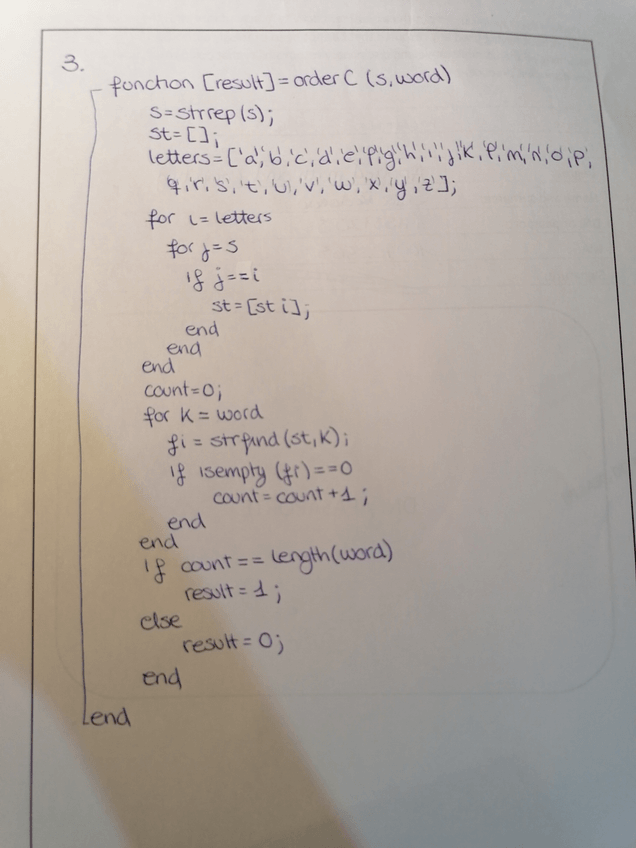 3.
function [result] = orderC (s,word)
s=strrep(s);
st=[];
letters=['a','b','c','d','e','f','g','h','i','j','k','l','m','n','o','p',
'q','r','s','t','u','v','w','x','y','z'];
for i=letters
for j=s
if j==i
st=[st i];
end
end
end
count=0;
for k=word
fi = strfind(st,k);
if isempty (fi)==0
count=count+1;
end
end
if count == length(word)
result=1;
else
result=0;
end
end